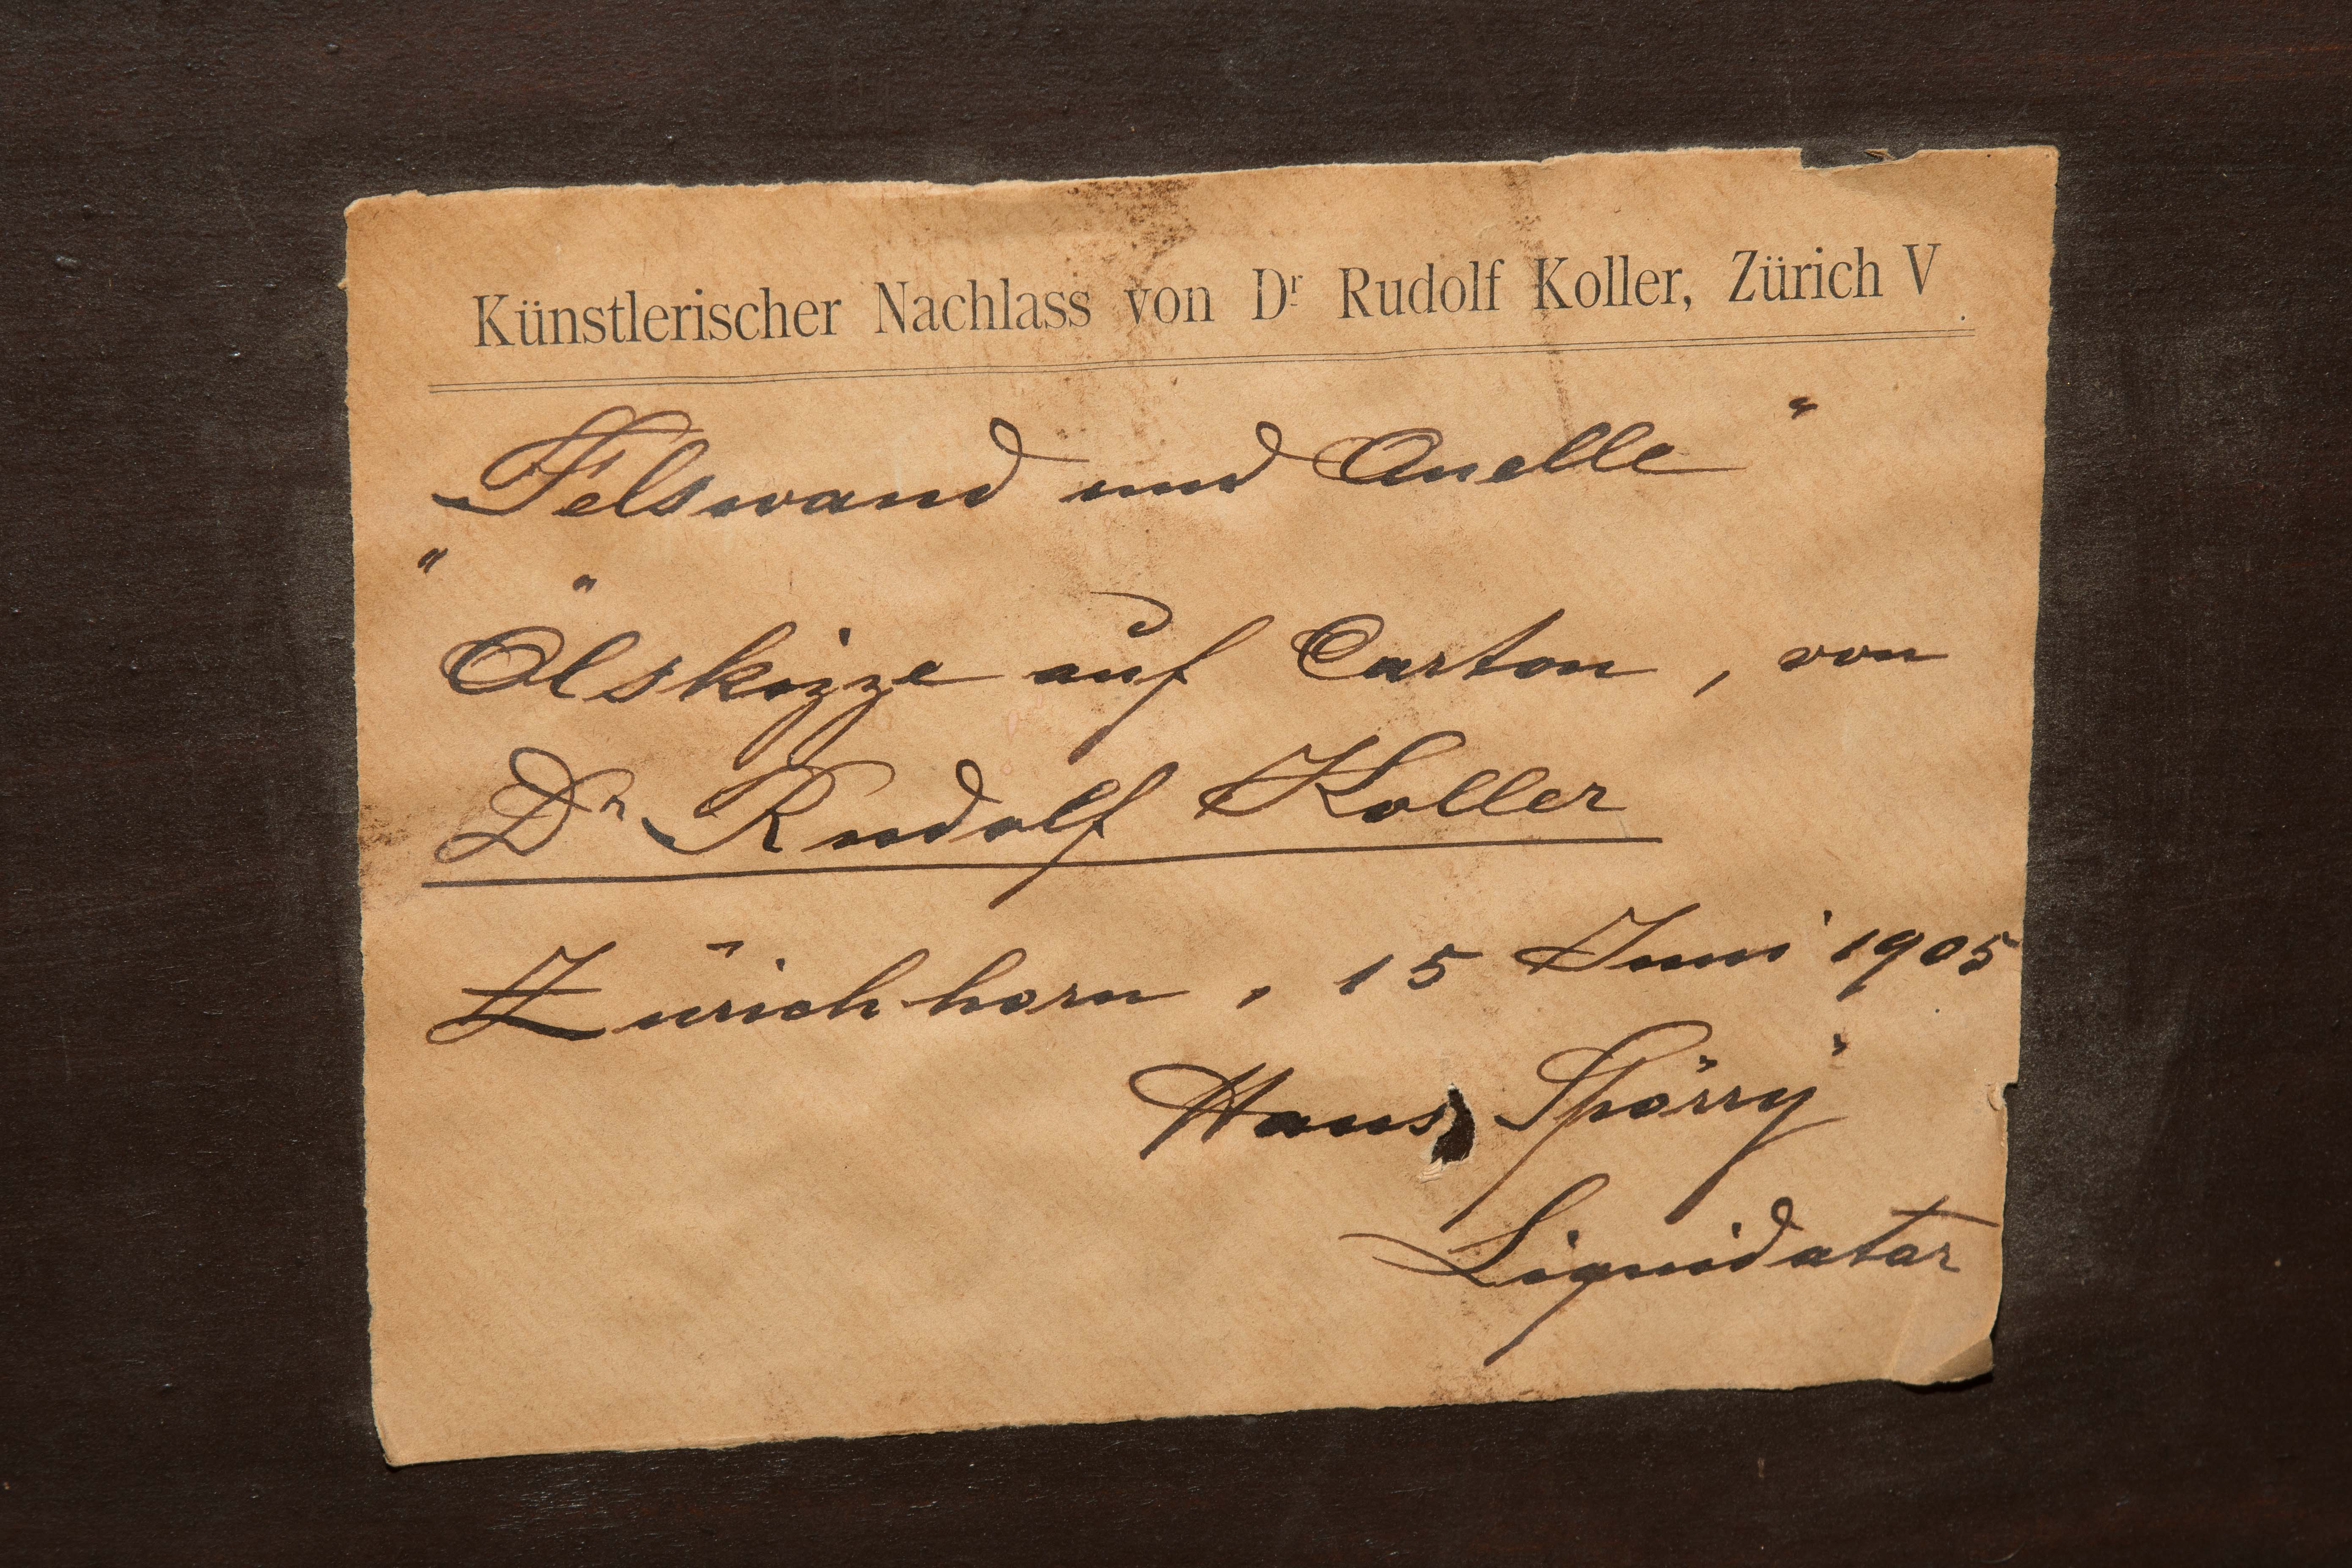 Künstlerischer Nachlass von Dr Rudolf Koller, Zürich V.
„Felswand und Quelle"
Ölskizze auf Carton, von
Dr Rudolf Koller
Zürichhorn, 15 Juni 1905
Hans Spörry
Liquidator